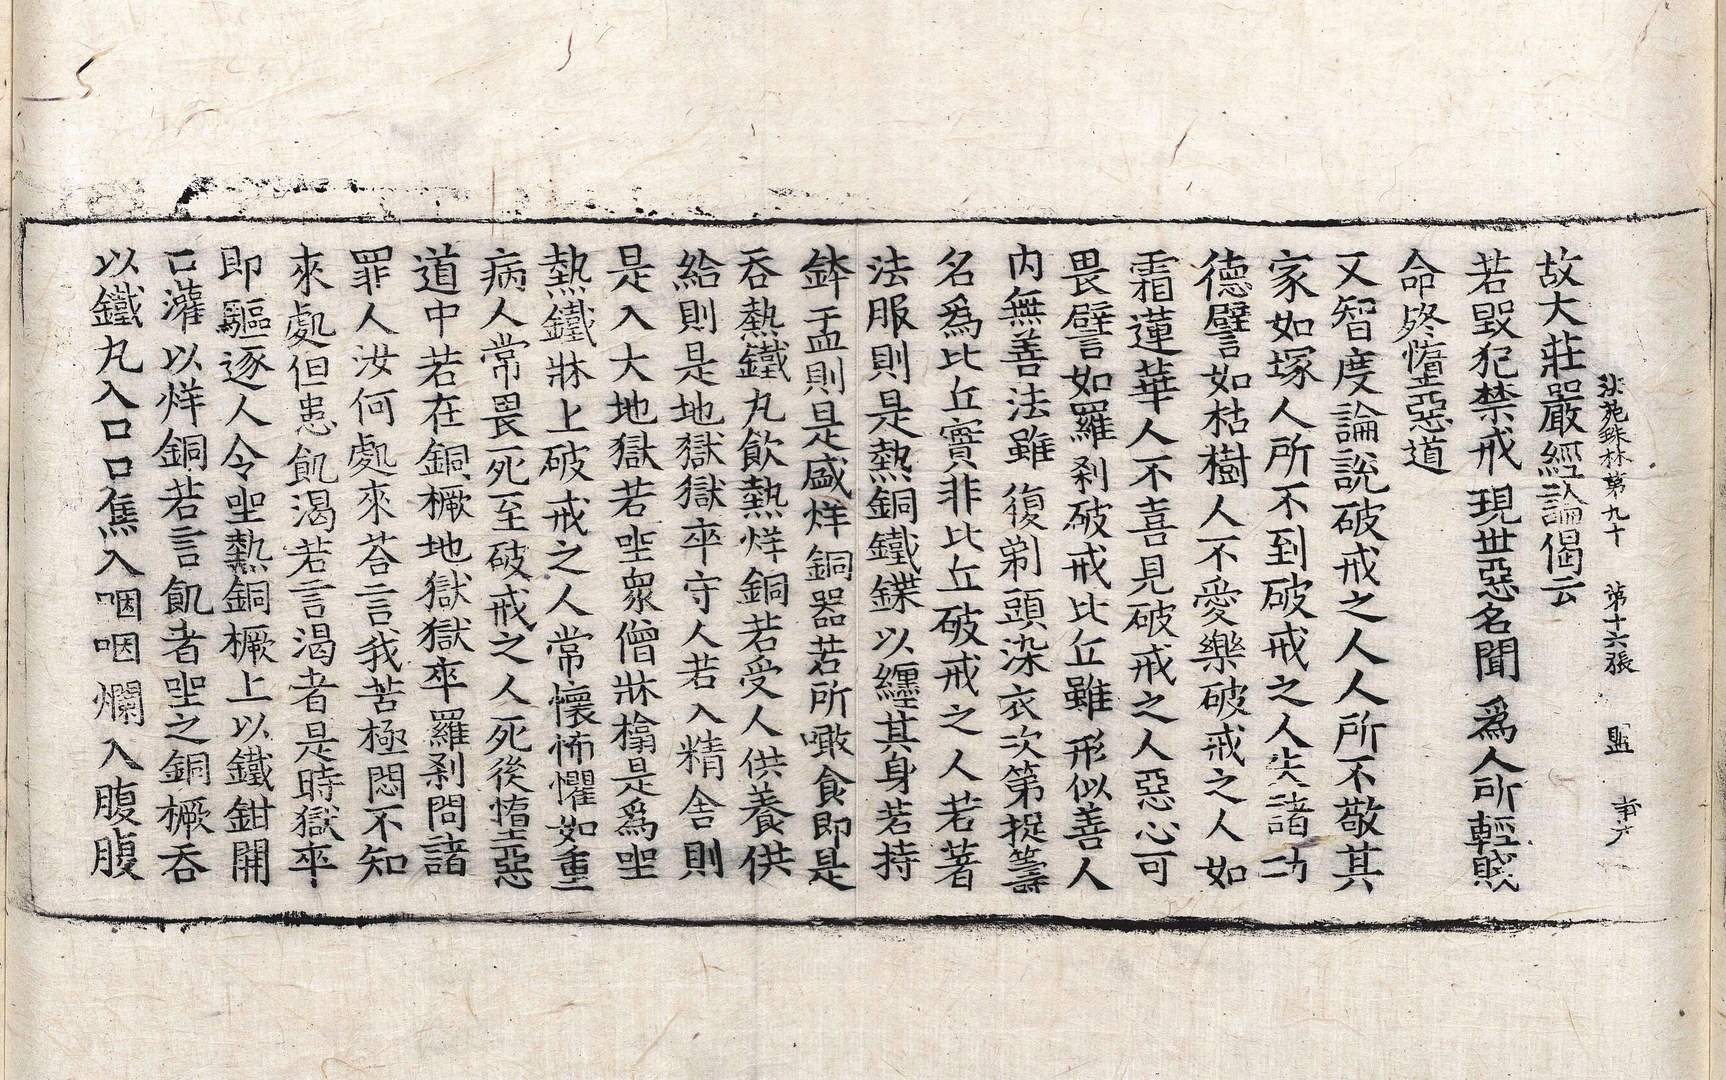 法苑珠林第九十 第十六張
故大莊嚴經論偈云
若毀犯禁戒 現世惡名聞 爲人所輕賤
命終墮惡道
又智度論說破戒之人人所不敬其
家如塚人所不到破戒之人失諸功
德譬如枯樹人不愛樂破戒之人如
霜蓮華人不喜見破戒之人惡心可
畏譬如羅刹破戒比丘雖形似善人
內無善法雖復剃頭染衣次第捉籌
名爲比丘實非比丘破戒之人若著
法服則是熱銅鐵鍱以纏其身若持
鉢盂則是盛烊銅器若所噉食即是
吞熱鐵丸飲熱烊銅若受人供養供
給則是地獄獄卒守人若入精舍則
是入大地獄若坐衆僧牀榻是爲坐
熱鐵牀上破戒之人常懷怖懼如重
病人常畏死至破戒之人死後墮惡
道中若在銅橛地獄獄卒羅刹問諸
罪人汝何處來荅言我苦極悶不知
來處但患飢渴若言渴者是時獄卒
即驅逐人令坐熱銅橛上以鐵鉗開
口灌以烊銅若言飢者坐之銅橛吞
以鐵丸入口口焦入咽咽爛入腹腹